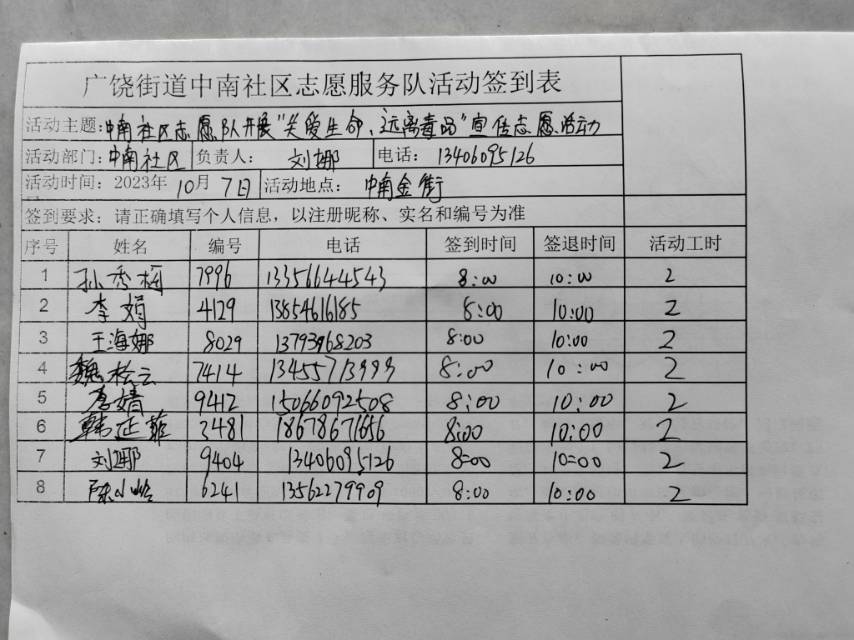 广饶街道中南社区志愿服务队活动签到表
活动主题:中南社区志愿队开展"关爱生命、远离毒品"宣传志愿活动
活动部门:中南社区 负责人: 刘娜 电话: 13406095126
活动时间: 2023年10月7日 活动地点: 中南金街
签到要求: 请正确填写个人信息，以注册昵称、实名和编号为准
序号 姓名 编号 电话 签到时间 签退时间 活动工时
1 孙秀梅 7996 13356644543 8:00 10:00 2
2 李娟 4129 13854616185 8:00 10:00 2
3 王海娜 8029 13793968203 8:00 10:00 2
4 魏松云 7414 13455713999 8:00 10:00 2
5 李婧 9412 15066092508 8:00 10:00 2
6 韩延菲 3481 18678671656 8:00 10:00 2
7 刘娜 9404 13406095126 8=00 10=00 2
8 陈小 6241 13562279909 8:00 10:00 2